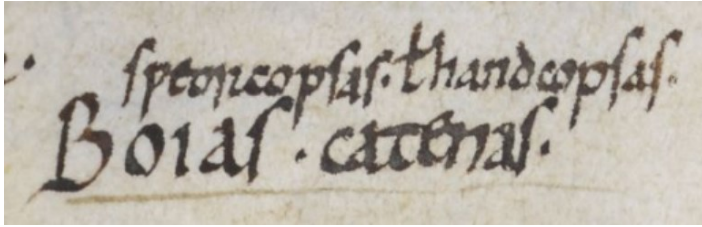 sƿeorcopsas· ł handcopsas·
Boias · catenas·